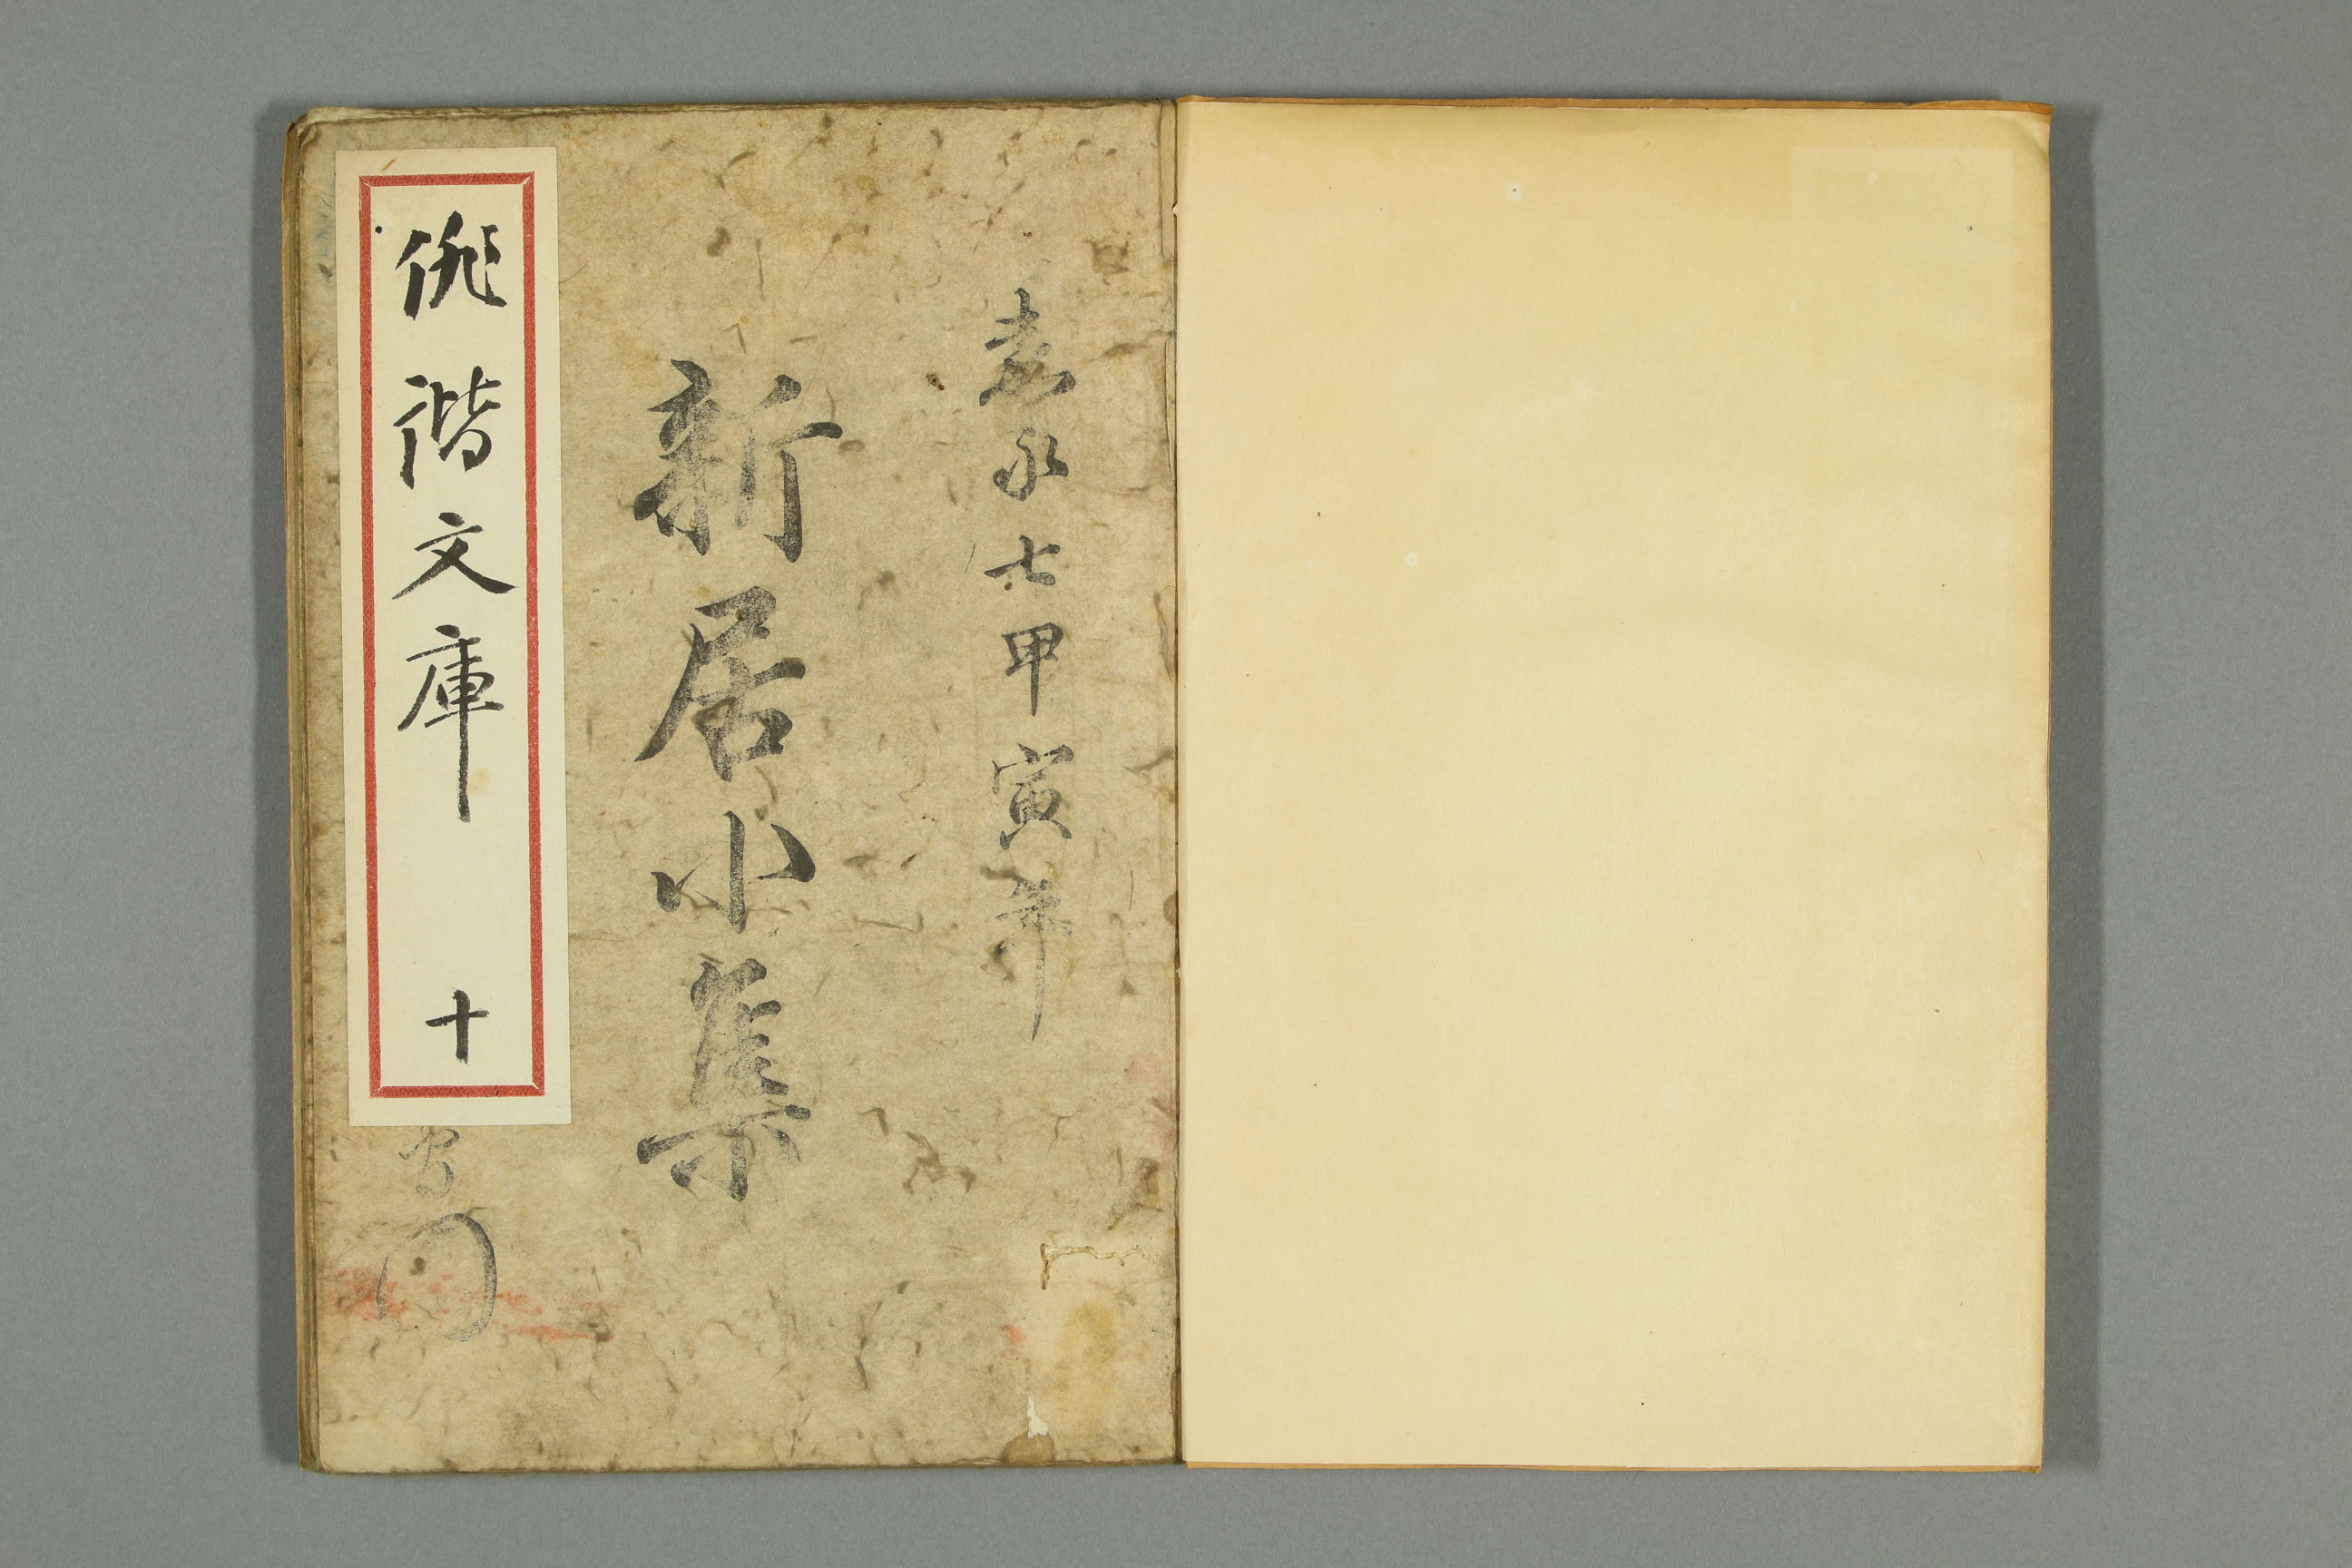 嘉永七甲寅年
新居小集
俳諧文庫 十